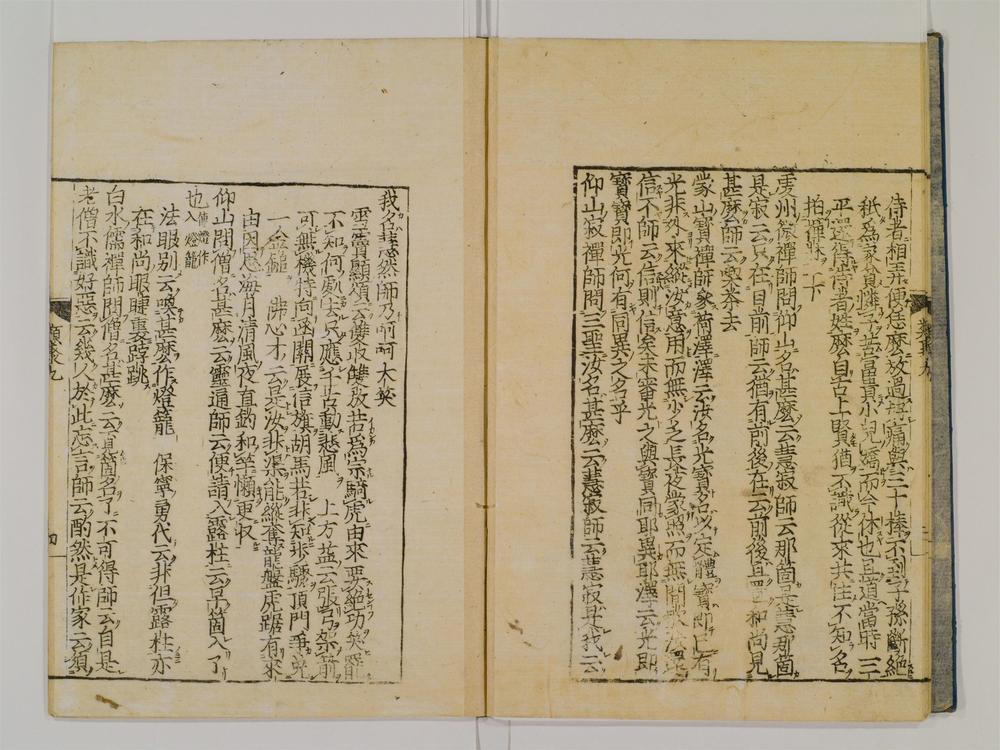 侍者相弄便恁麼放過每痛與三十棒不到子孫斷絕
秖為家貧憐子苦富貴小兒嬌而今休也且道當時三
平還得侍者
拍禪牀一下
虔州微禪師問仰山名甚麼云慧寂師云那箇是慧那箇
是寂云只在目前師云猶有前後在云前後且置和尚見
甚麼師云喫茶去
蒙山寶禪師參荷澤澤云汝名光寶名以定體寶即已有
光非外來縱汝意用而無少乏長夜蒙照而無間歇汝還
信不師云信則信矣未審光之與寶同耶異耶澤云光即
寶寶即光何有同異之名乎
仰山寂禪師問三聖汝名甚麼云慧寂師云慧寂是我云
我名慧然師乃呵呵大笑
雪竇顯頌云雙收雙放若為宗騎虎由來要絕功笑罷
不知何處去只應千古動悲風　上方益云張弓架箭
可無機特向函關展信旗胡馬若非知步驟頂門爭免
一金鎚　佛心才云是汝非渠能縱奪龍盤虎踞有來
由因思海月清風夜直釣和竿懶更收
仰山問僧名甚麼云靈通師云便請入露柱云早箇入了
也傳燈作入燈籠
法眼別云喚甚麼作燈籠　保寧勇代云非但露柱亦
在和尚眼睫裏𨁝跳
白水儒禪師問僧名甚麼云有箇名了不可得師云自是
老僧不識好惡云幾人於此忘言師云酌然是作家云須